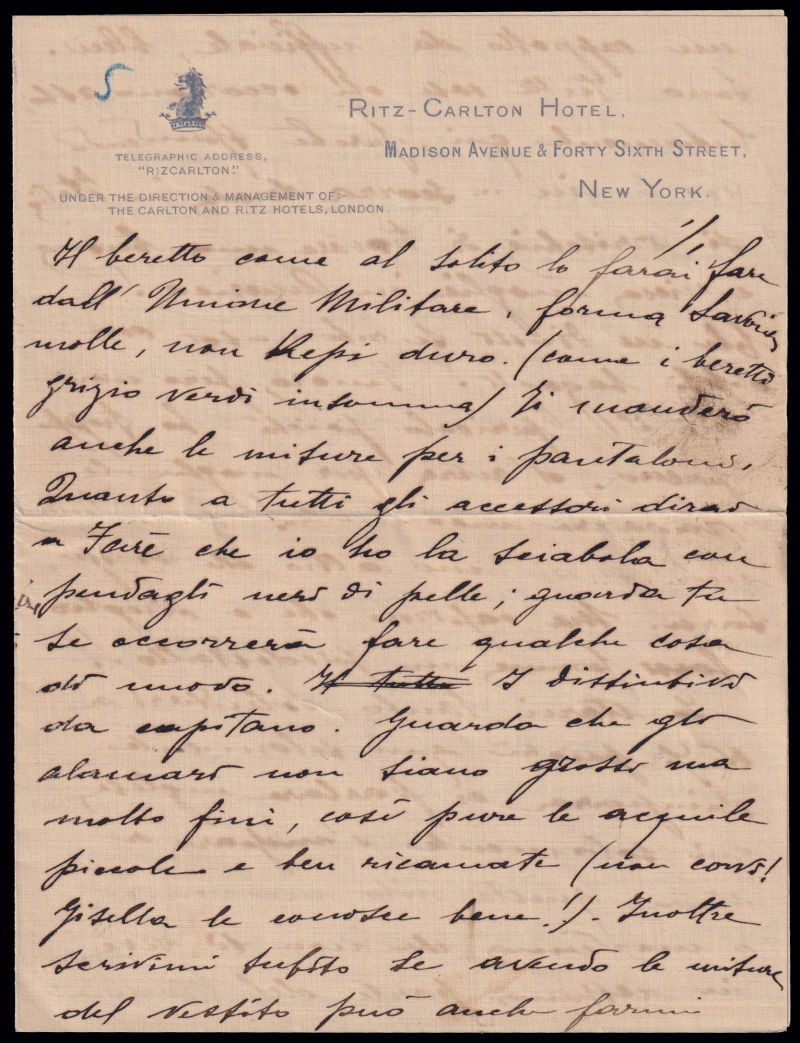 5
RITZ-CARLTON HOTEL,
MADISON AVENUE & FORTY SIXTH STREET,
NEW YORK.
TELEGRAPHIC ADDRESS,
"RIZCARLTON."
UNDER THE DIRECTION & MANAGEMENT OF:-
THE CARLTON AND RITZ HOTELS, LONDON.
Il beretto come al solito lo farai fare
dall' Unione Militare, forma
molle, non Kepi duro. (come i beretto
grigio verdi insomma) Ti manderò
anche le misure per i pantaloni.
Quanto a tutti gli accessori dirai
a che io ho la sciabola con
pendagli neri di pelle; guarda tu
se occorrerà fare qualche cosa
di nuovo. Il tutto I distintivi
da capitano. Guarda che gli
alamari non siano grossi ma
molto fini, così pure le aquile
piccole e ben ricamate (non corvi!
Gisella le conosce bene!). Inoltre
scrivimi subito se avendo le misure
del vestito può anche farmi